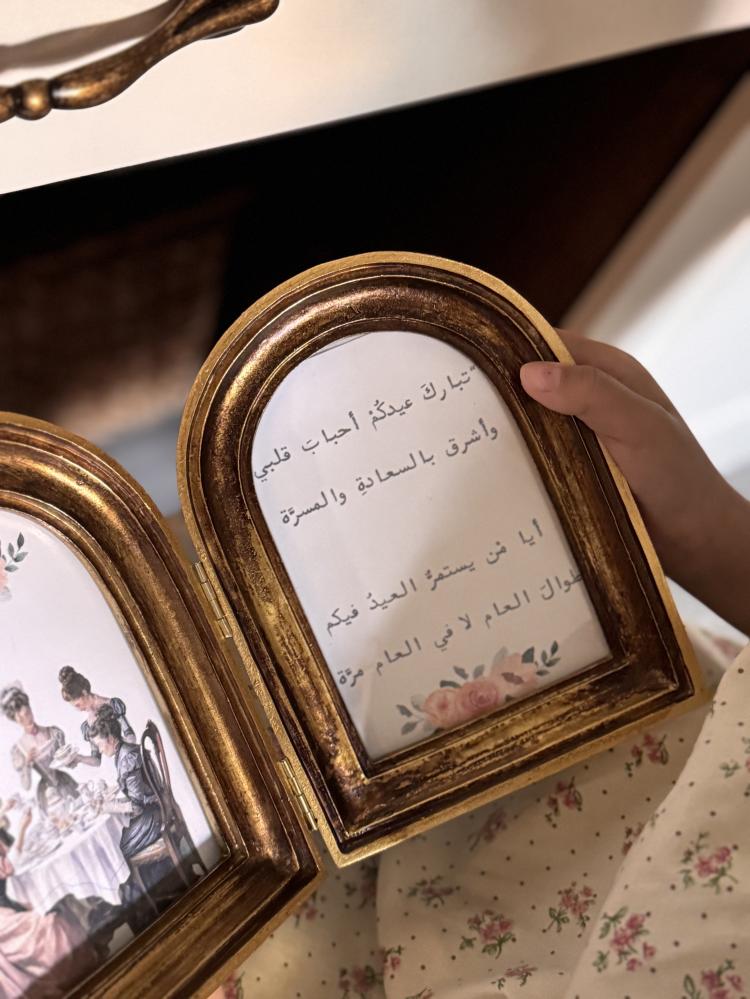 "تباركَ عيدكُمْ أحباب قلبي
وأشرق بالسعادةِ والمسرَّة
أيا مَن يستمرُّ العيدُ فيكم
طوالَ العام لا في العام مرَّة